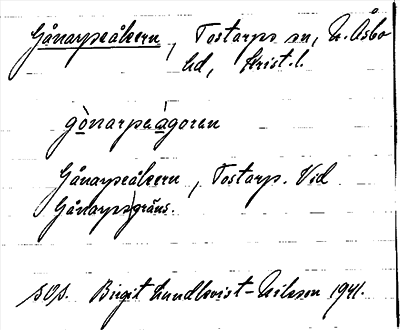 Gånarpeåkern, Tostarps sn, N. Åsbo
hd, Krist. l.
gònarpeàgoren
Gånarpeåkern, Tostarp. Vid
Gånarps gräns.
SOs. Birgit Lundkvist-Nilsson 1941.